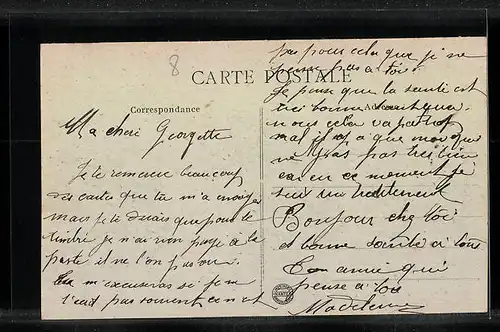 8
CARTE POSTALE
Correspondance
Ma cheri Georgette
Je te remercie beaucoup
des cartes que tu m'a envoyer
mais je te dirais que pour le
timbre je n'ai non payé à la
poste il ne l'on pas vu
tu m'excuseras si je ne
t'ecit pas souvent ce n'est
pas pour cela que je ne
pense pas a toi
Je pense que la santé est
très bonne
nous cela va pas trop
mal il y a que moi qui
ne vais pas très bien
car en ce moment je
suit un traitement
Bonjour chez toi
et bonne santé a tous
Ton amie qui
pense a toi
Madeleine